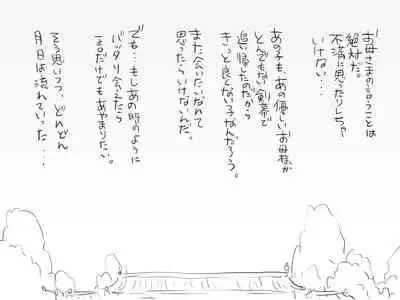 お母さまの言うことは
絶対だ。
不満に思ったりしちゃ
いけない…
あの子も、あの優しいお母様が
とんでもない剣幕で
追い帰したのだから
きっと良くない子なんだろう。
また会いたいなんて
思ったらいけないんだ。
でも…もしあの時のように
バッタリ会えたら
一言だけでもあやまりたい。
そう思いつつ、どんどん
月日は流れていった…